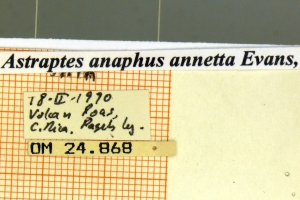 Astraptes anaphus annetta Evans,
18-II-1990
Volcan Poas,
C. Rica. leg.
OM 24.868